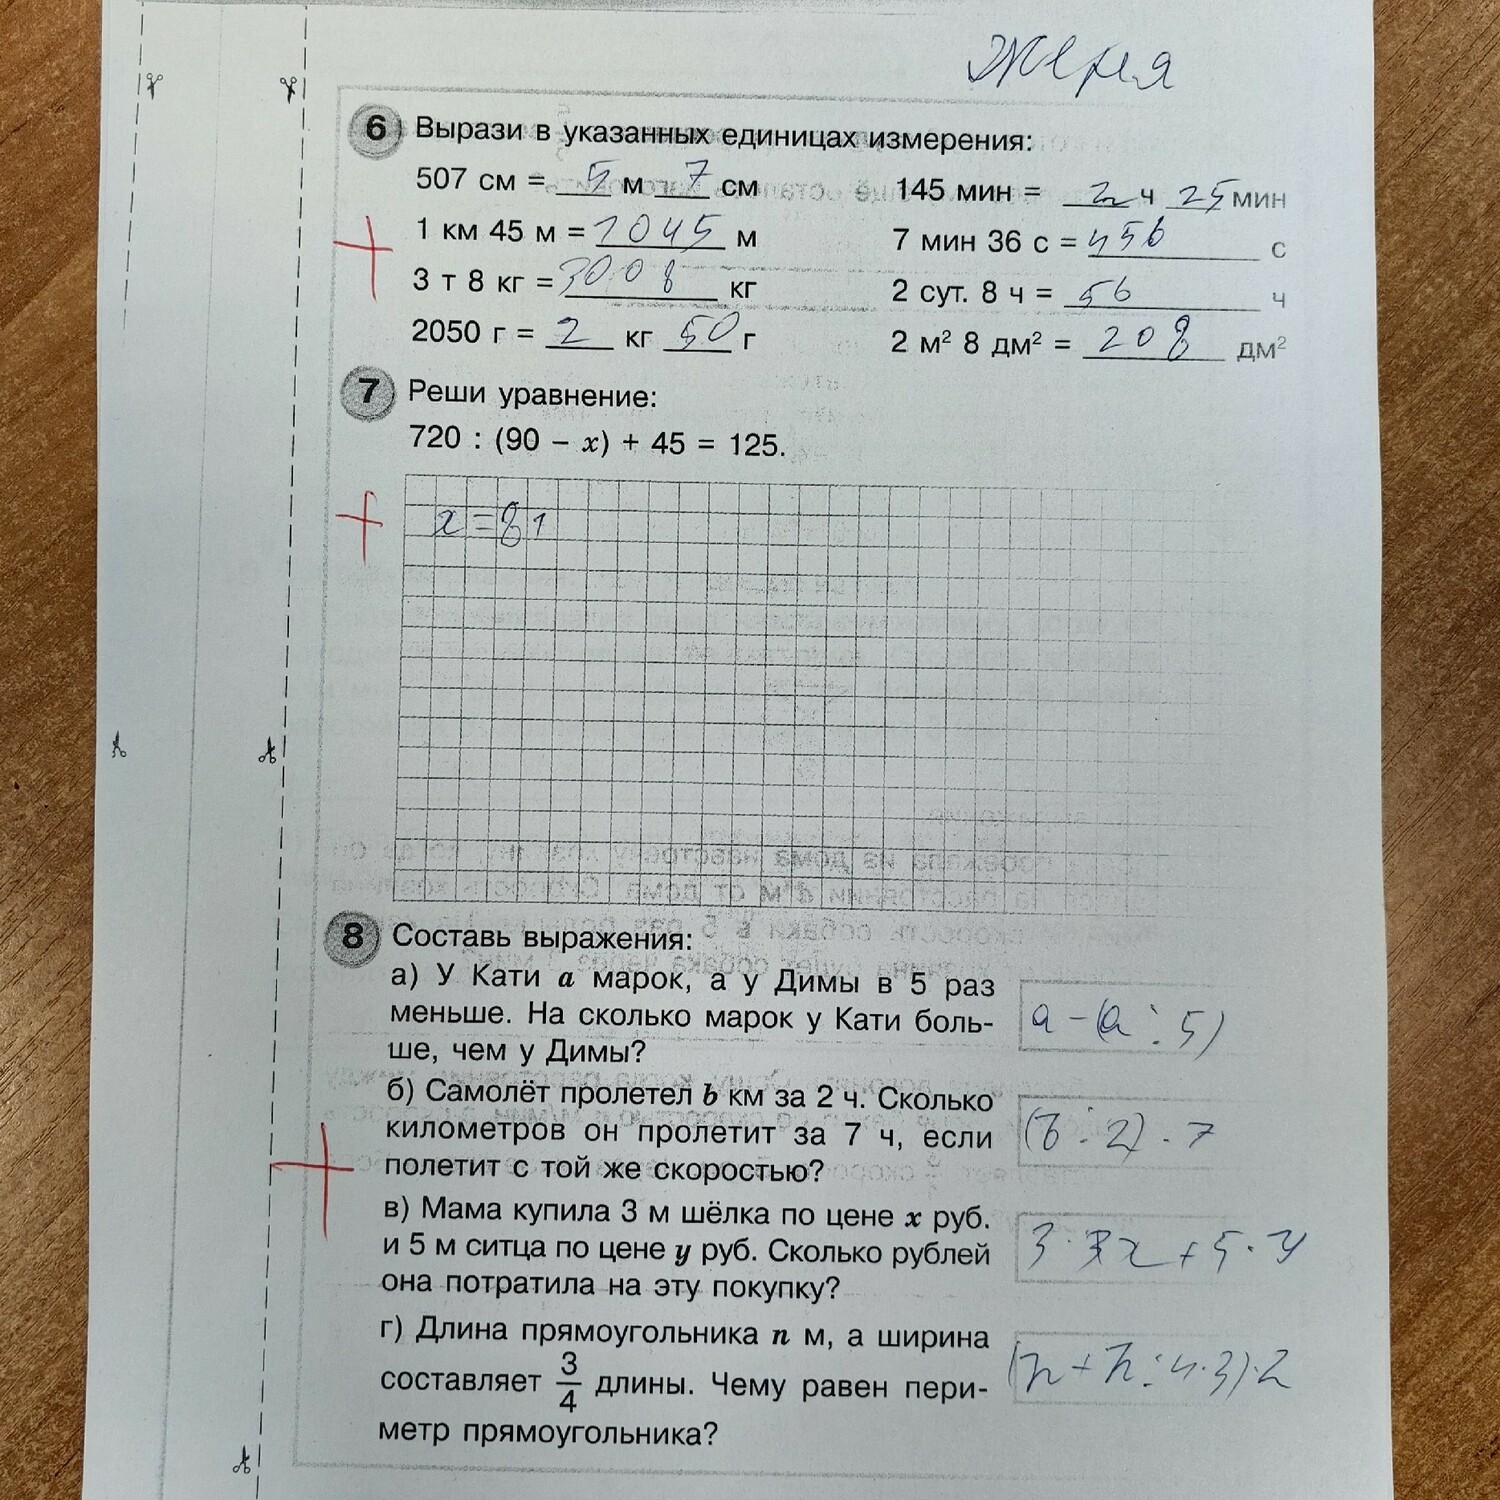 Женя
6 Вырази в указанных единицах измерения:
507 см = 5 м 7 см 145 мин = 2 ч 25 мин
1 км 45 м = 1045 м 7 мин 36 с = 456 с
3 т 8 кг = 3008 кг 2 сут. 8 ч = 56 ч
2050 г = 2 кг 50 г 2 м² 8 дм² = 208 дм²
7 Реши уравнение:
720 : (90 – x) + 45 = 125.
x = 81
8 Составь выражения:
а) У Кати a марок, а у Димы в 5 раз
меньше. На сколько марок у Кати боль-
ше, чем у Димы?
a - (a : 5)
б) Самолёт пролетел b км за 2 ч. Сколько
километров он пролетит за 7 ч, если
полетит с той же скоростью?
(b : 2) · 7
в) Мама купила 3 м шёлка по цене x руб.
и 5 м ситца по цене y руб. Сколько рублей
она потратила на эту покупку?
3 · x + 5 · y
г) Длина прямоугольника n м, а ширина
составляет 3/4 длины. Чему равен пери-
метр прямоугольника?
(n + n : 4 · 3) · 2